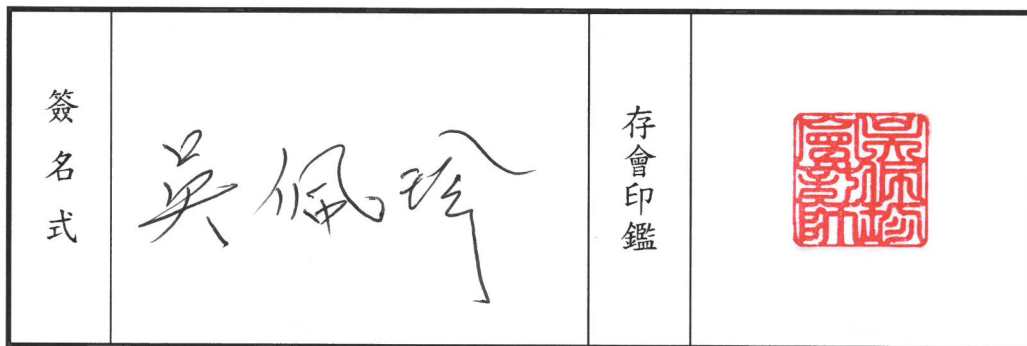 簽名式
吳佩珍
存會印鑑
吳佩珍會計師